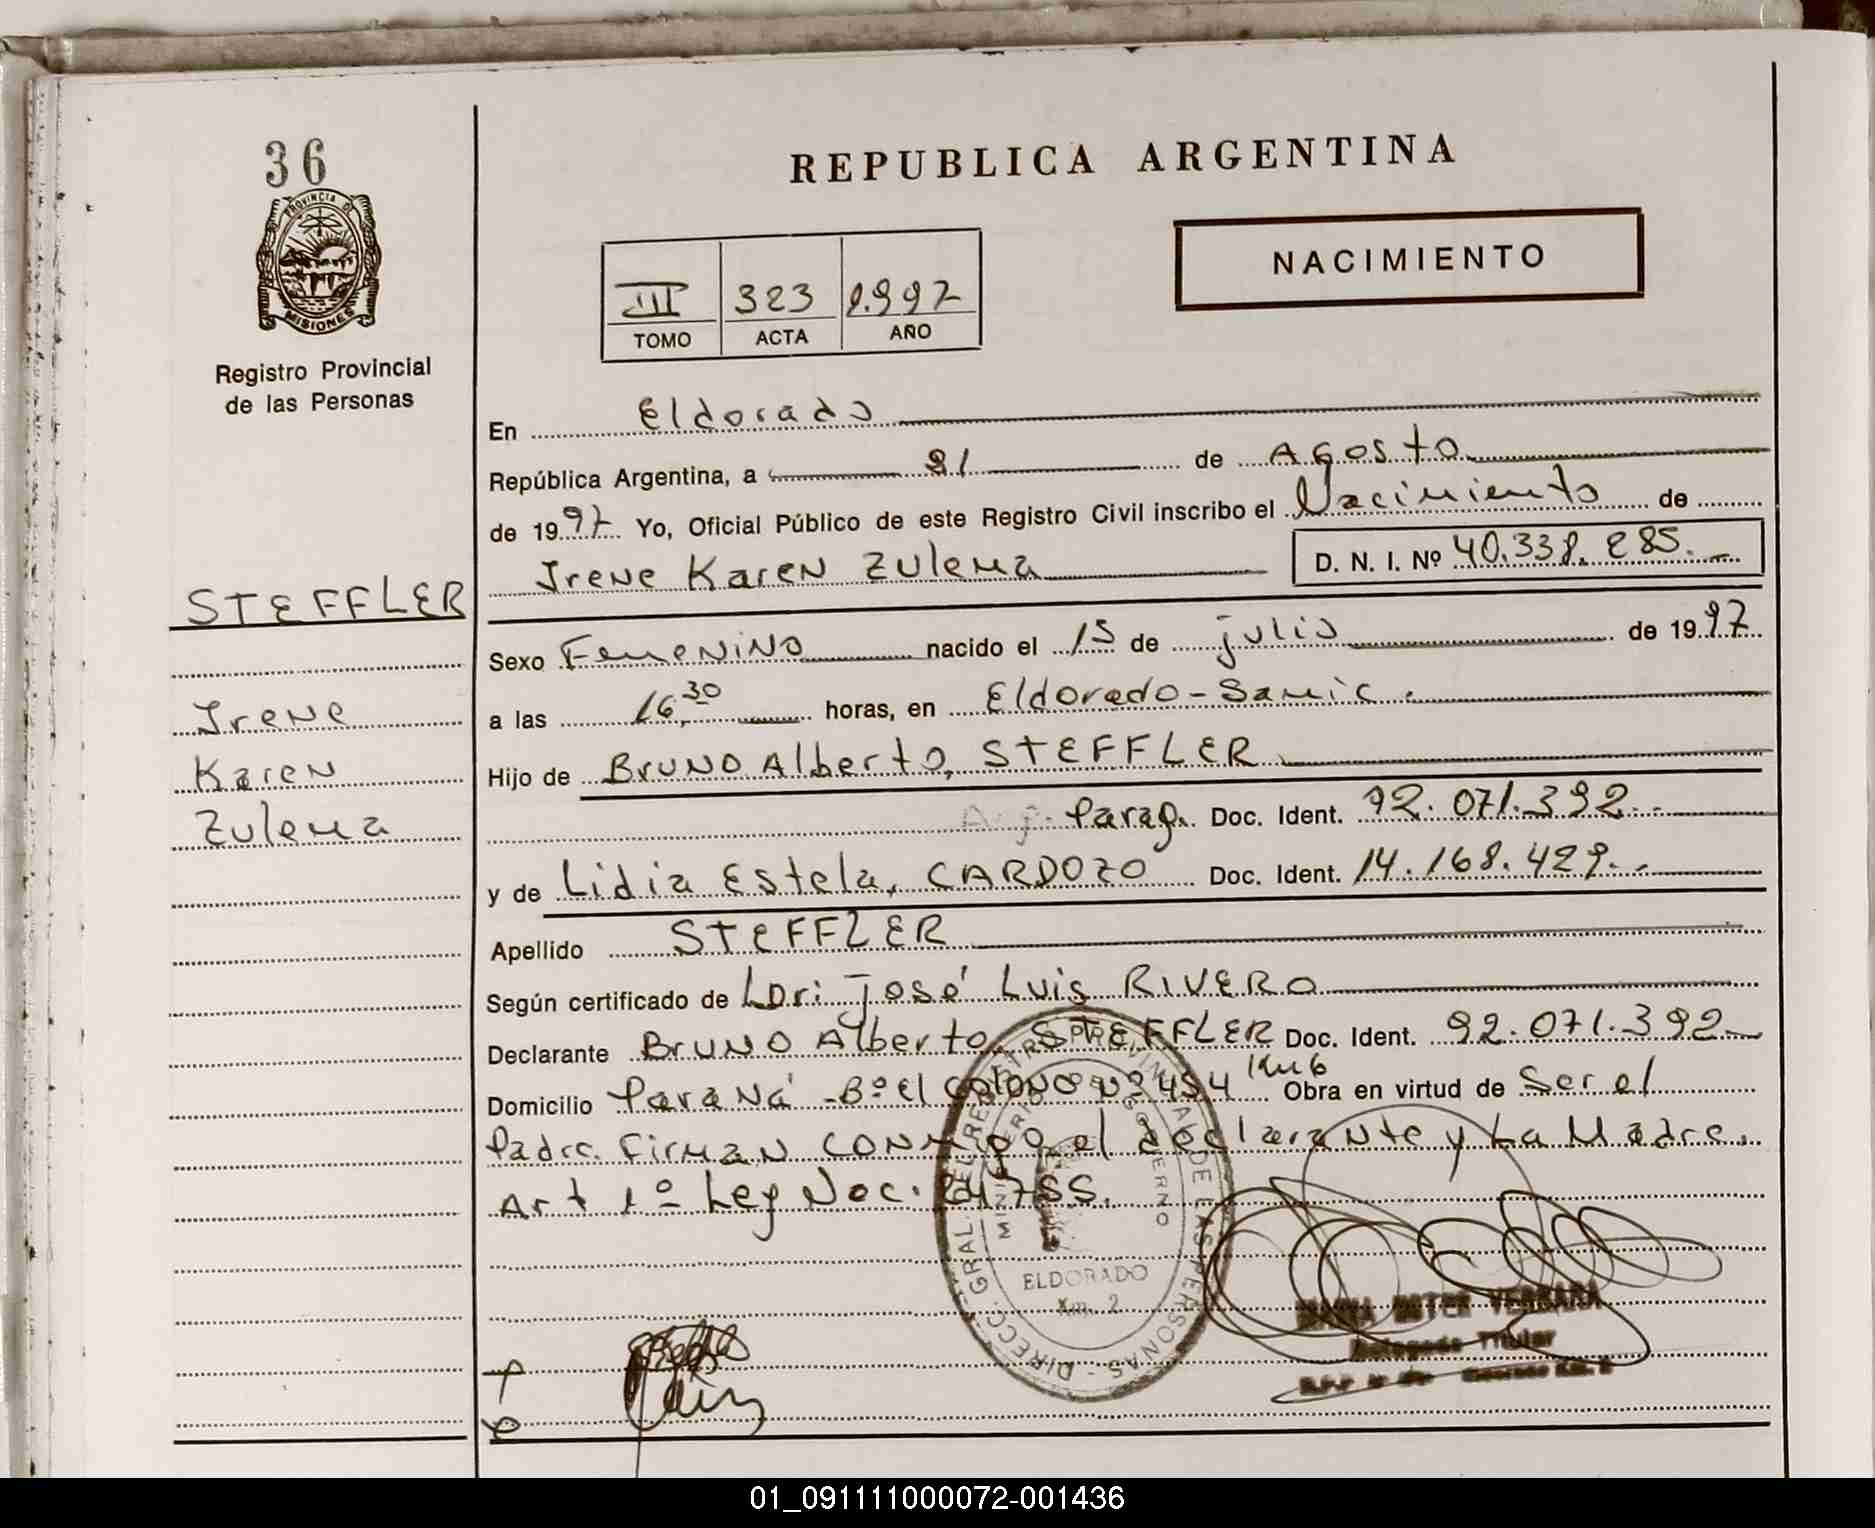 36
PROVINCIA DE
MISIONES
Registro Provincial
de las Personas
STEFFLER
Irene
Karen
Zulema
REPUBLICA ARGENTINA
NACIMIENTO
III 323 1.997
TOMO ACTA AÑO
En Eldorado
República Argentina, a 21 de Agosto
de 1997 Yo, Oficial Público de este Registro Civil inscribo el Nacimiento de
Irene Karen Zulema D. N. I. Nº 40.338.285.
Sexo Femenino nacido el 15 de julio de 1997
a las 16,30 horas, en Eldorado-Samic.
Hijo de Bruno Alberto, STEFFLER
Parag. Doc. Ident. 92.071.392.-
y de Lidia Estela, CARDOZO Doc. Ident. 14.168.429.-
Apellido STEFFLER
Según certificado de Dr: José Luis RIVERO
Declarante Bruno Alberto, STEFFLER Doc. Ident. 92.071.392
Domicilio Paraná -Bº el Colono Nº 454 Km 6 Obra en virtud de Ser el
Padre. Firman conmigo el declarante y La Madre.
Art 1º Ley Nac. 24.755.
DIRECC. GRAL. DEL REGISTRO PROVINCIAL DE LAS PERSONAS
MINISTERIO DE GOBIERNO
ELDORADO
Km. 2
VERGARA
Delegado Titular
01_091111000072-001436